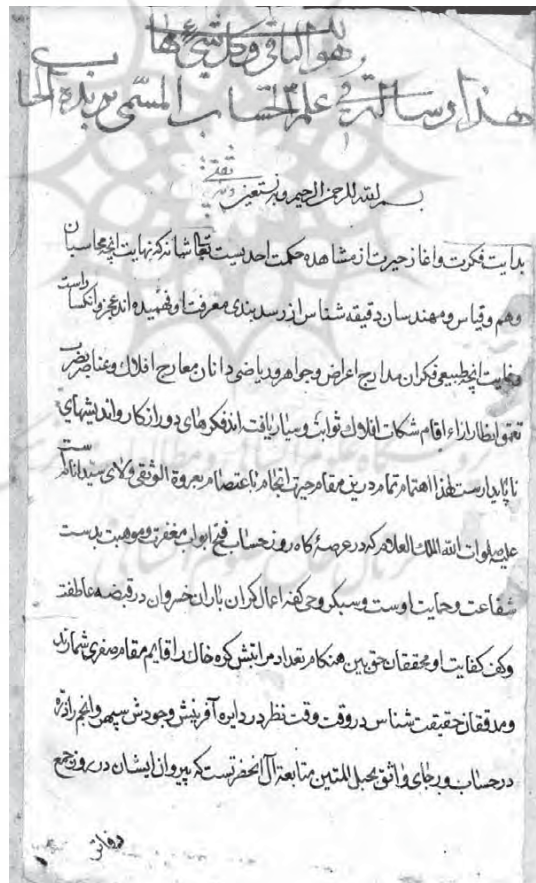 هو الباقي وكل شيء
هذا رسالة في علم الحساب المسمى بزبدة الحساب
بسم الله الرحمن الرحيم وبه نستعين
بدایت فکرت و اغاز حیرت از مشاهده حکمت احدیست تعالی شانه که نهایت انچه محاسبان
وهم و قیاس و مهندسان دقیقه شناس از رسد بندی معرفت او فهمیده اند عجز و انکسار است
و غایت انچه طبیعی فکران مدارج اعراض و جواهر و ریاضی دانان معارج افلاک و عناصر
تعمق انظار از اقام شکلات افلاک ثوابت و سیار یافته اند فکرهای دور از کار و اندیشهای
ناپایدارست لهذا اهتمام تمام درین مقام حیرت انجام با عتصام بعروة الوثقی ولای سید انام
علیه صلوات الله الملک العلام که در عرصهٔ کاه روز حساب فتح ابواب مغفرت و موهبت بدست
شفاعت و حمایت اوست و سبکروحی کفه اعمال کران باران خسروان در قبضه عاطفت
وکف کفایت او محققان حق بین هنکام تعداد مراتبش کره خاک را قایم مقام صفری شمارند
و مدققان حقیقت شناس در وقت وقت نظر در دایره آفرینش وجودش سپهر و انجم را ذره
در حساب و رجای واثق بحبل المتین متابعة آل انحضرتست که پیروان ایشان در روز جمع
دفاتر